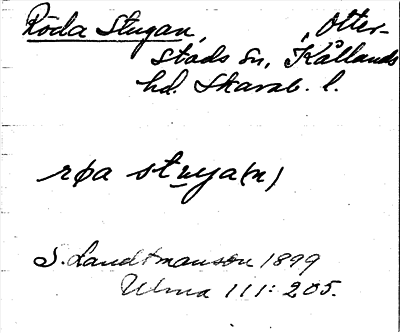 Röda Stugan, , Otter-
stads sn, Kållands
hd. Skarab. l.
røa stuga(n)
S. Landtmanson 1899
Ulma 111:205.